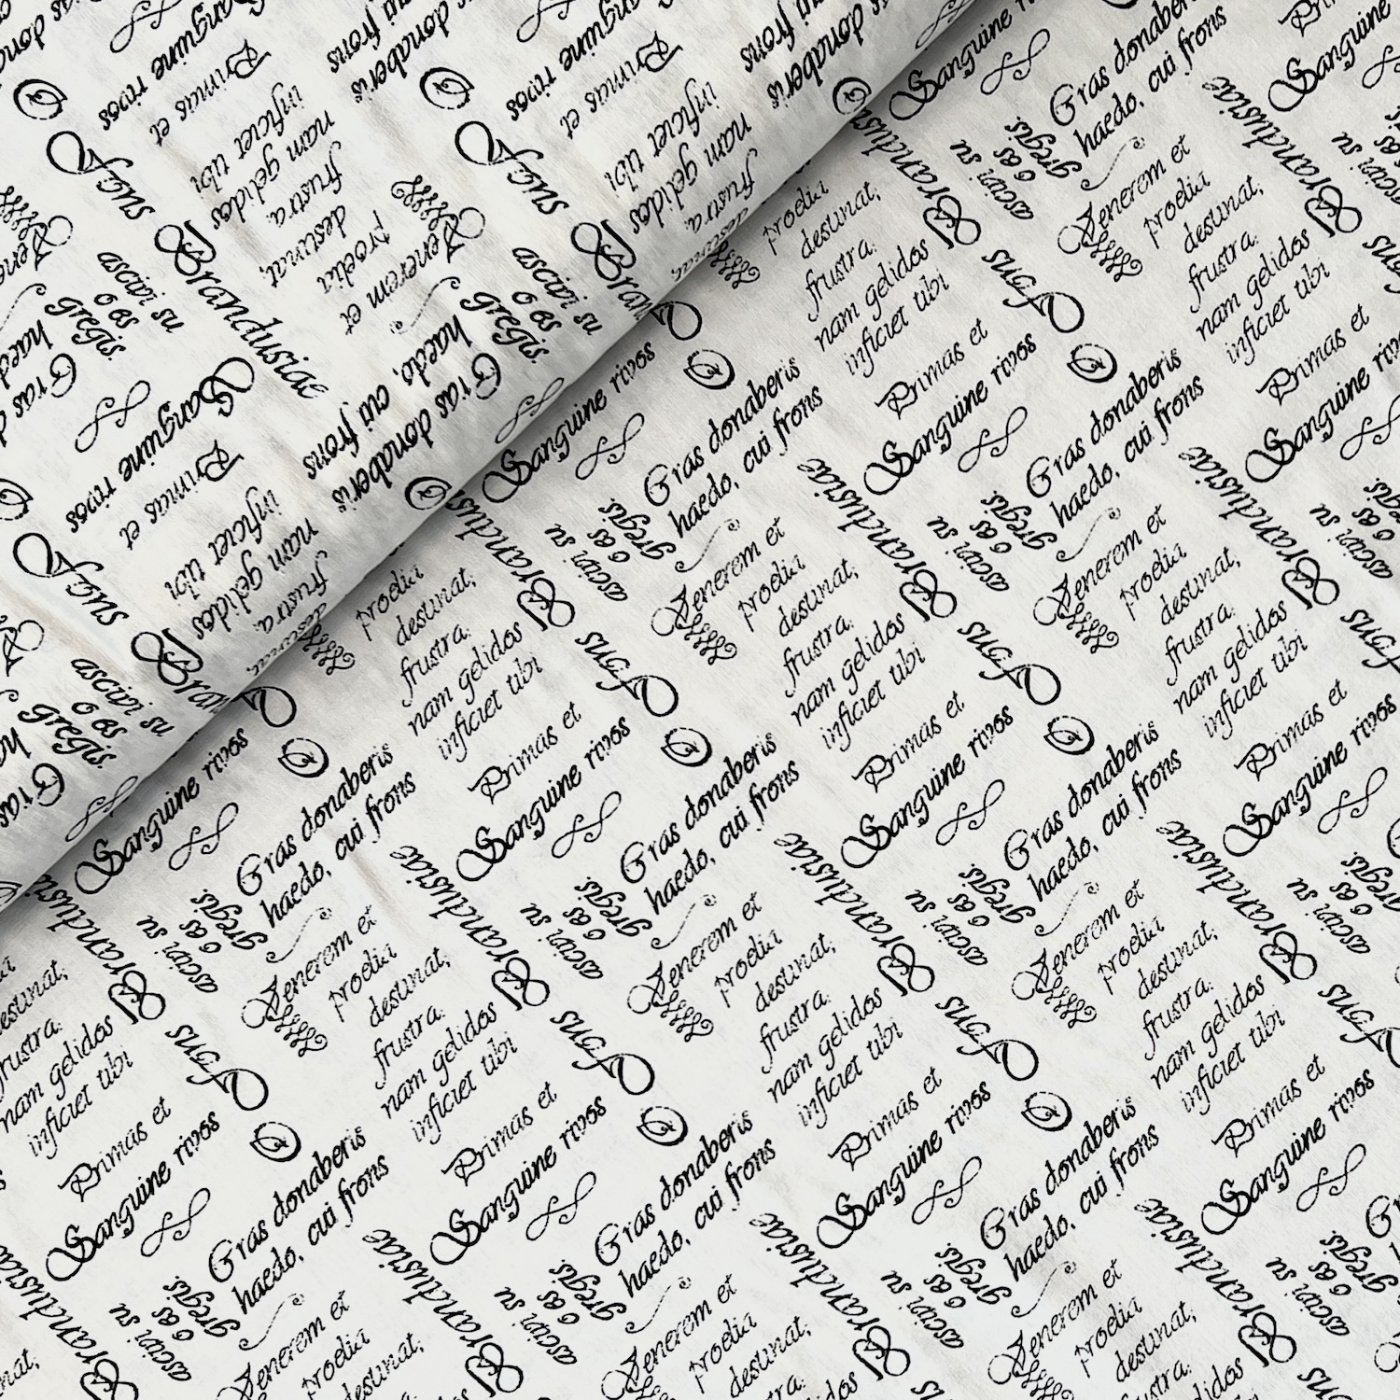 O
fons
Brandusiae
Gras donaberis
haedo, cui frons
gregis.
o es
ascivi su
Venerem et
proelia
destinat,
frustra.
nam gelidos
inficiet tibi
Primas et
Sanguine rivos